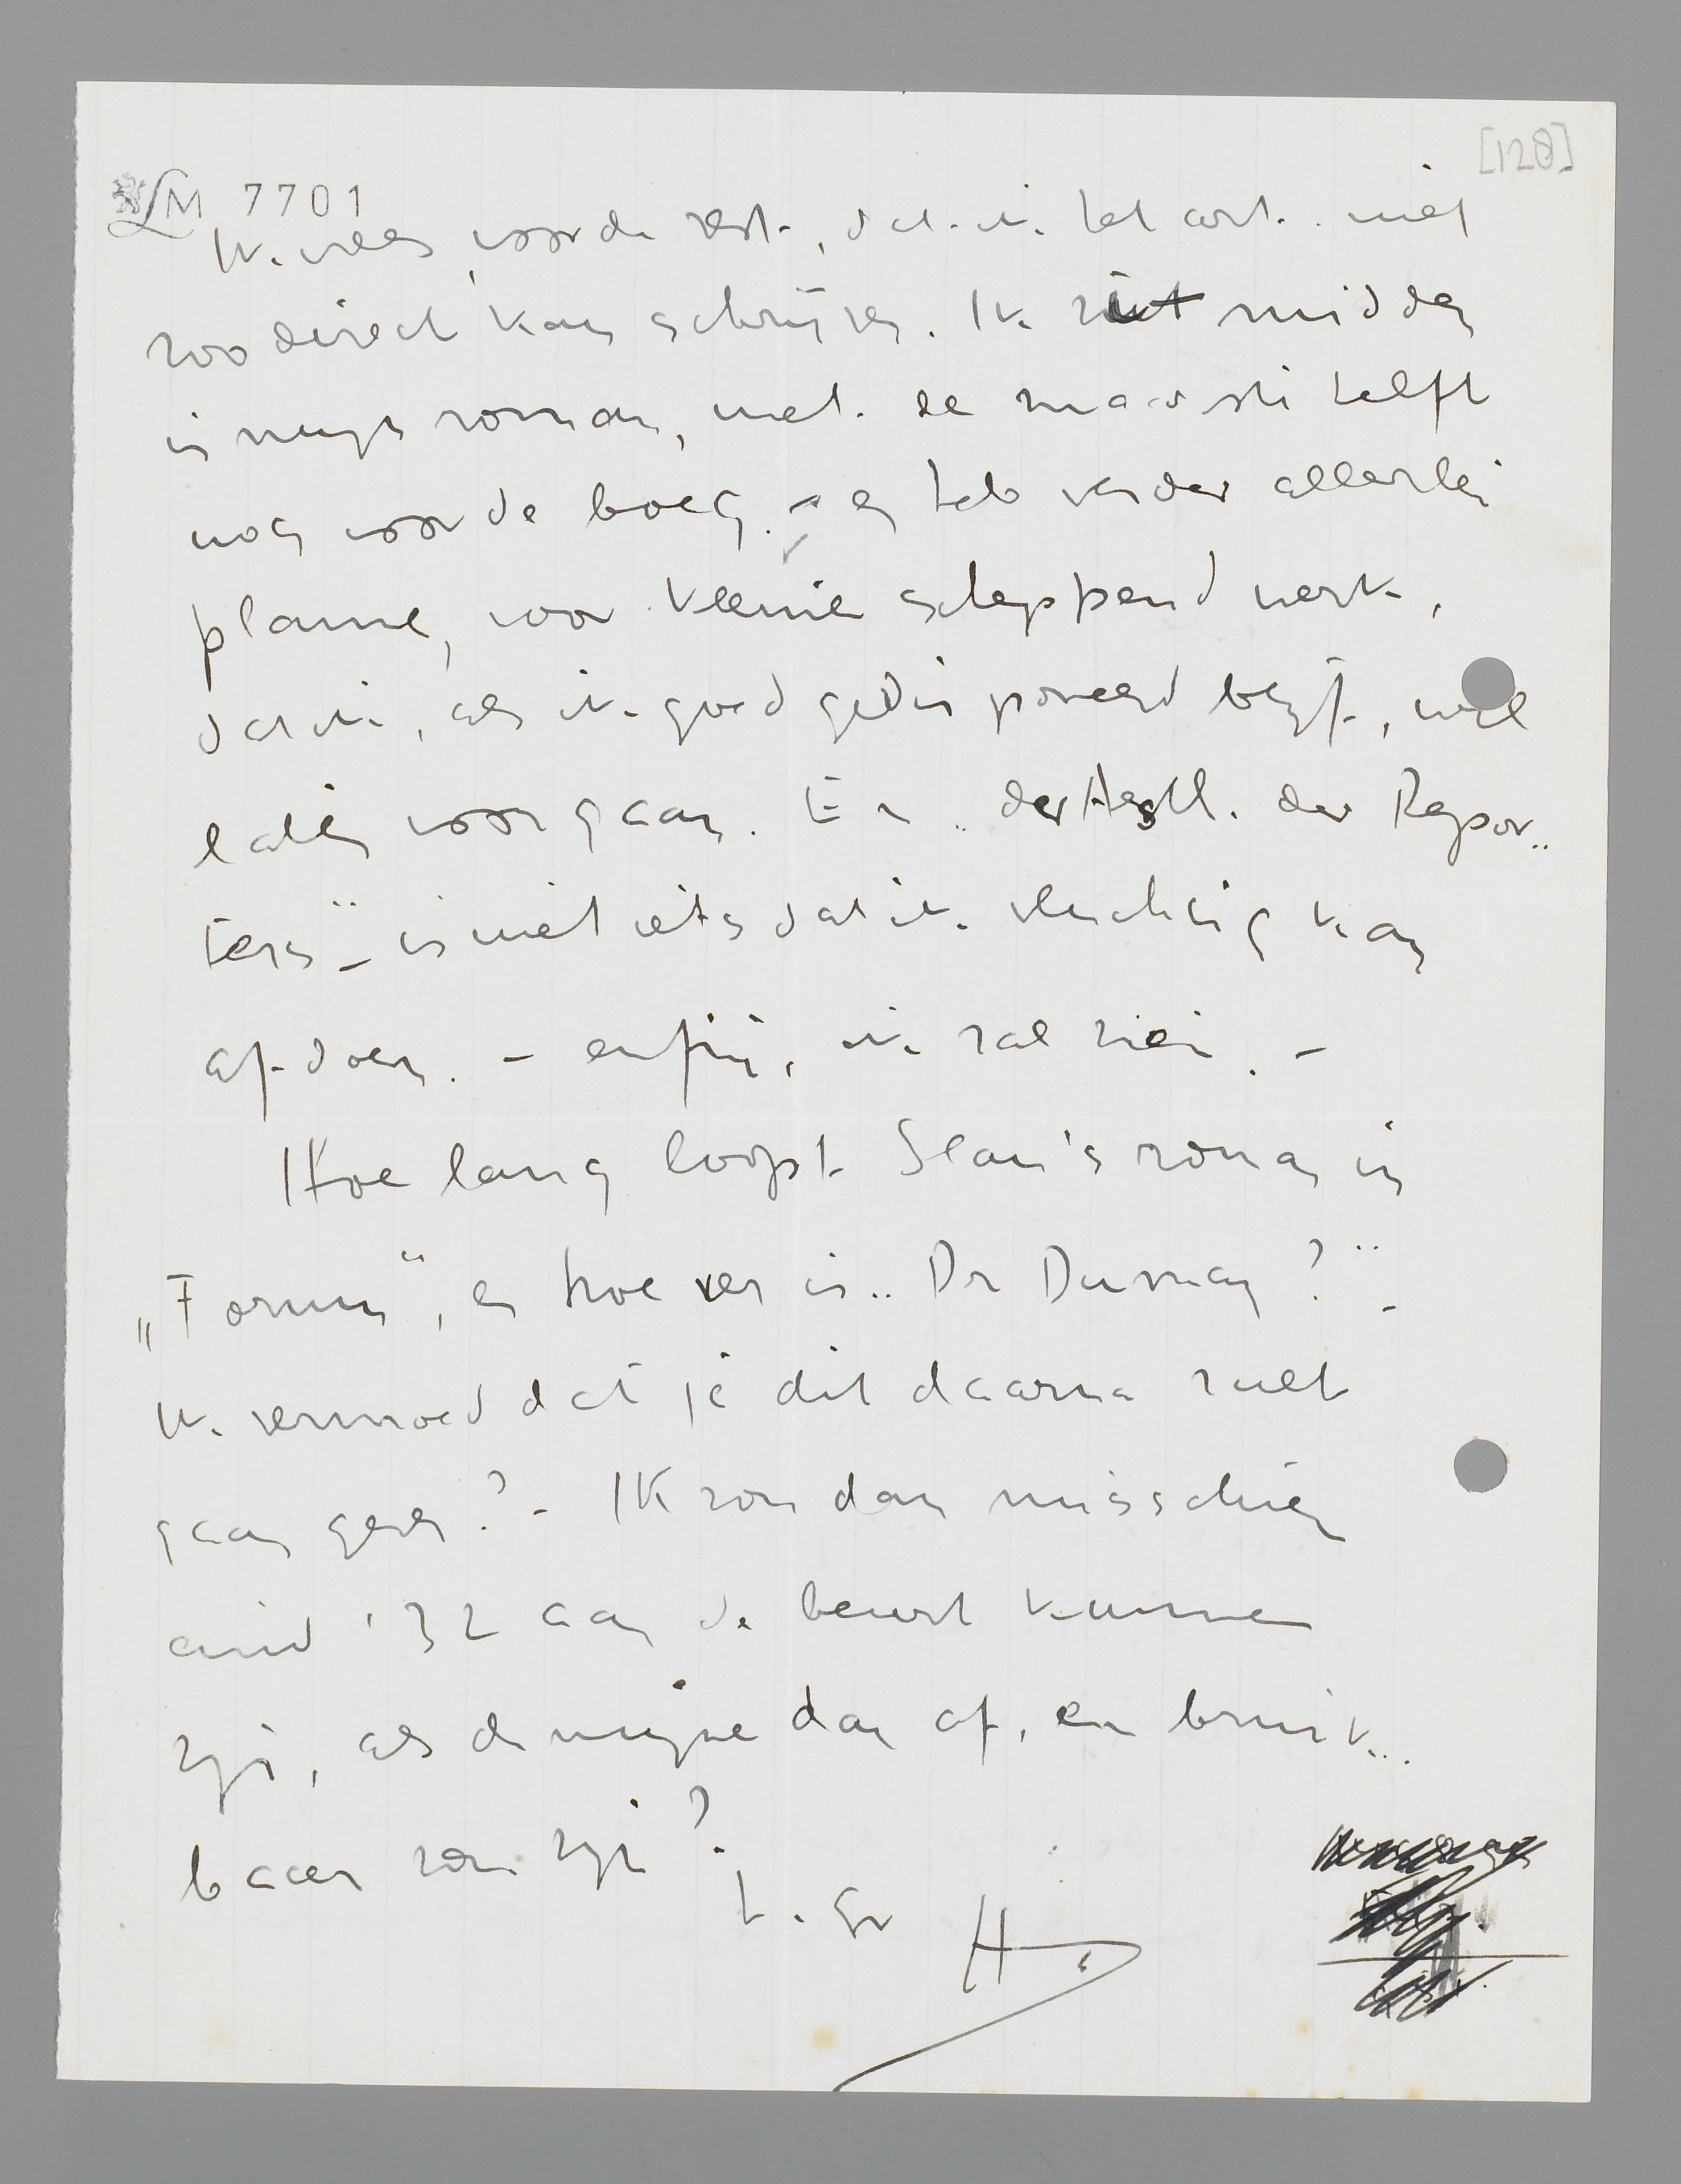 [128]
LM 7701
Ik vrees, voor de rest, dat ik het art. niet
zoo direct kan schrijven. Ik zit midden
in mijn roman, met de máárste helft
nog voor de boeg. – en heb verder allerlei
plannen, voor kleiner scheppend werk,
dat ik, als ik goed gedisponeerd blijf, wil
laten voorgaan. En „der Heerl. der Repor„
ters" – is niet iets dat ik vluchtig kan
afdoen. – enfin, ik zal zien. –
Hoe lang loopt Slau's roman in
„Forum", en hoe ver is „Dr Dumay?" –
Ik vermoed dat je dit daarna zult
gaan geven? – IK zou dan misschien
eind '32 aan de beurt kunnen
zijn, als de mijne dan af, en bruik„
baar zou zijn?
h. gr
H.